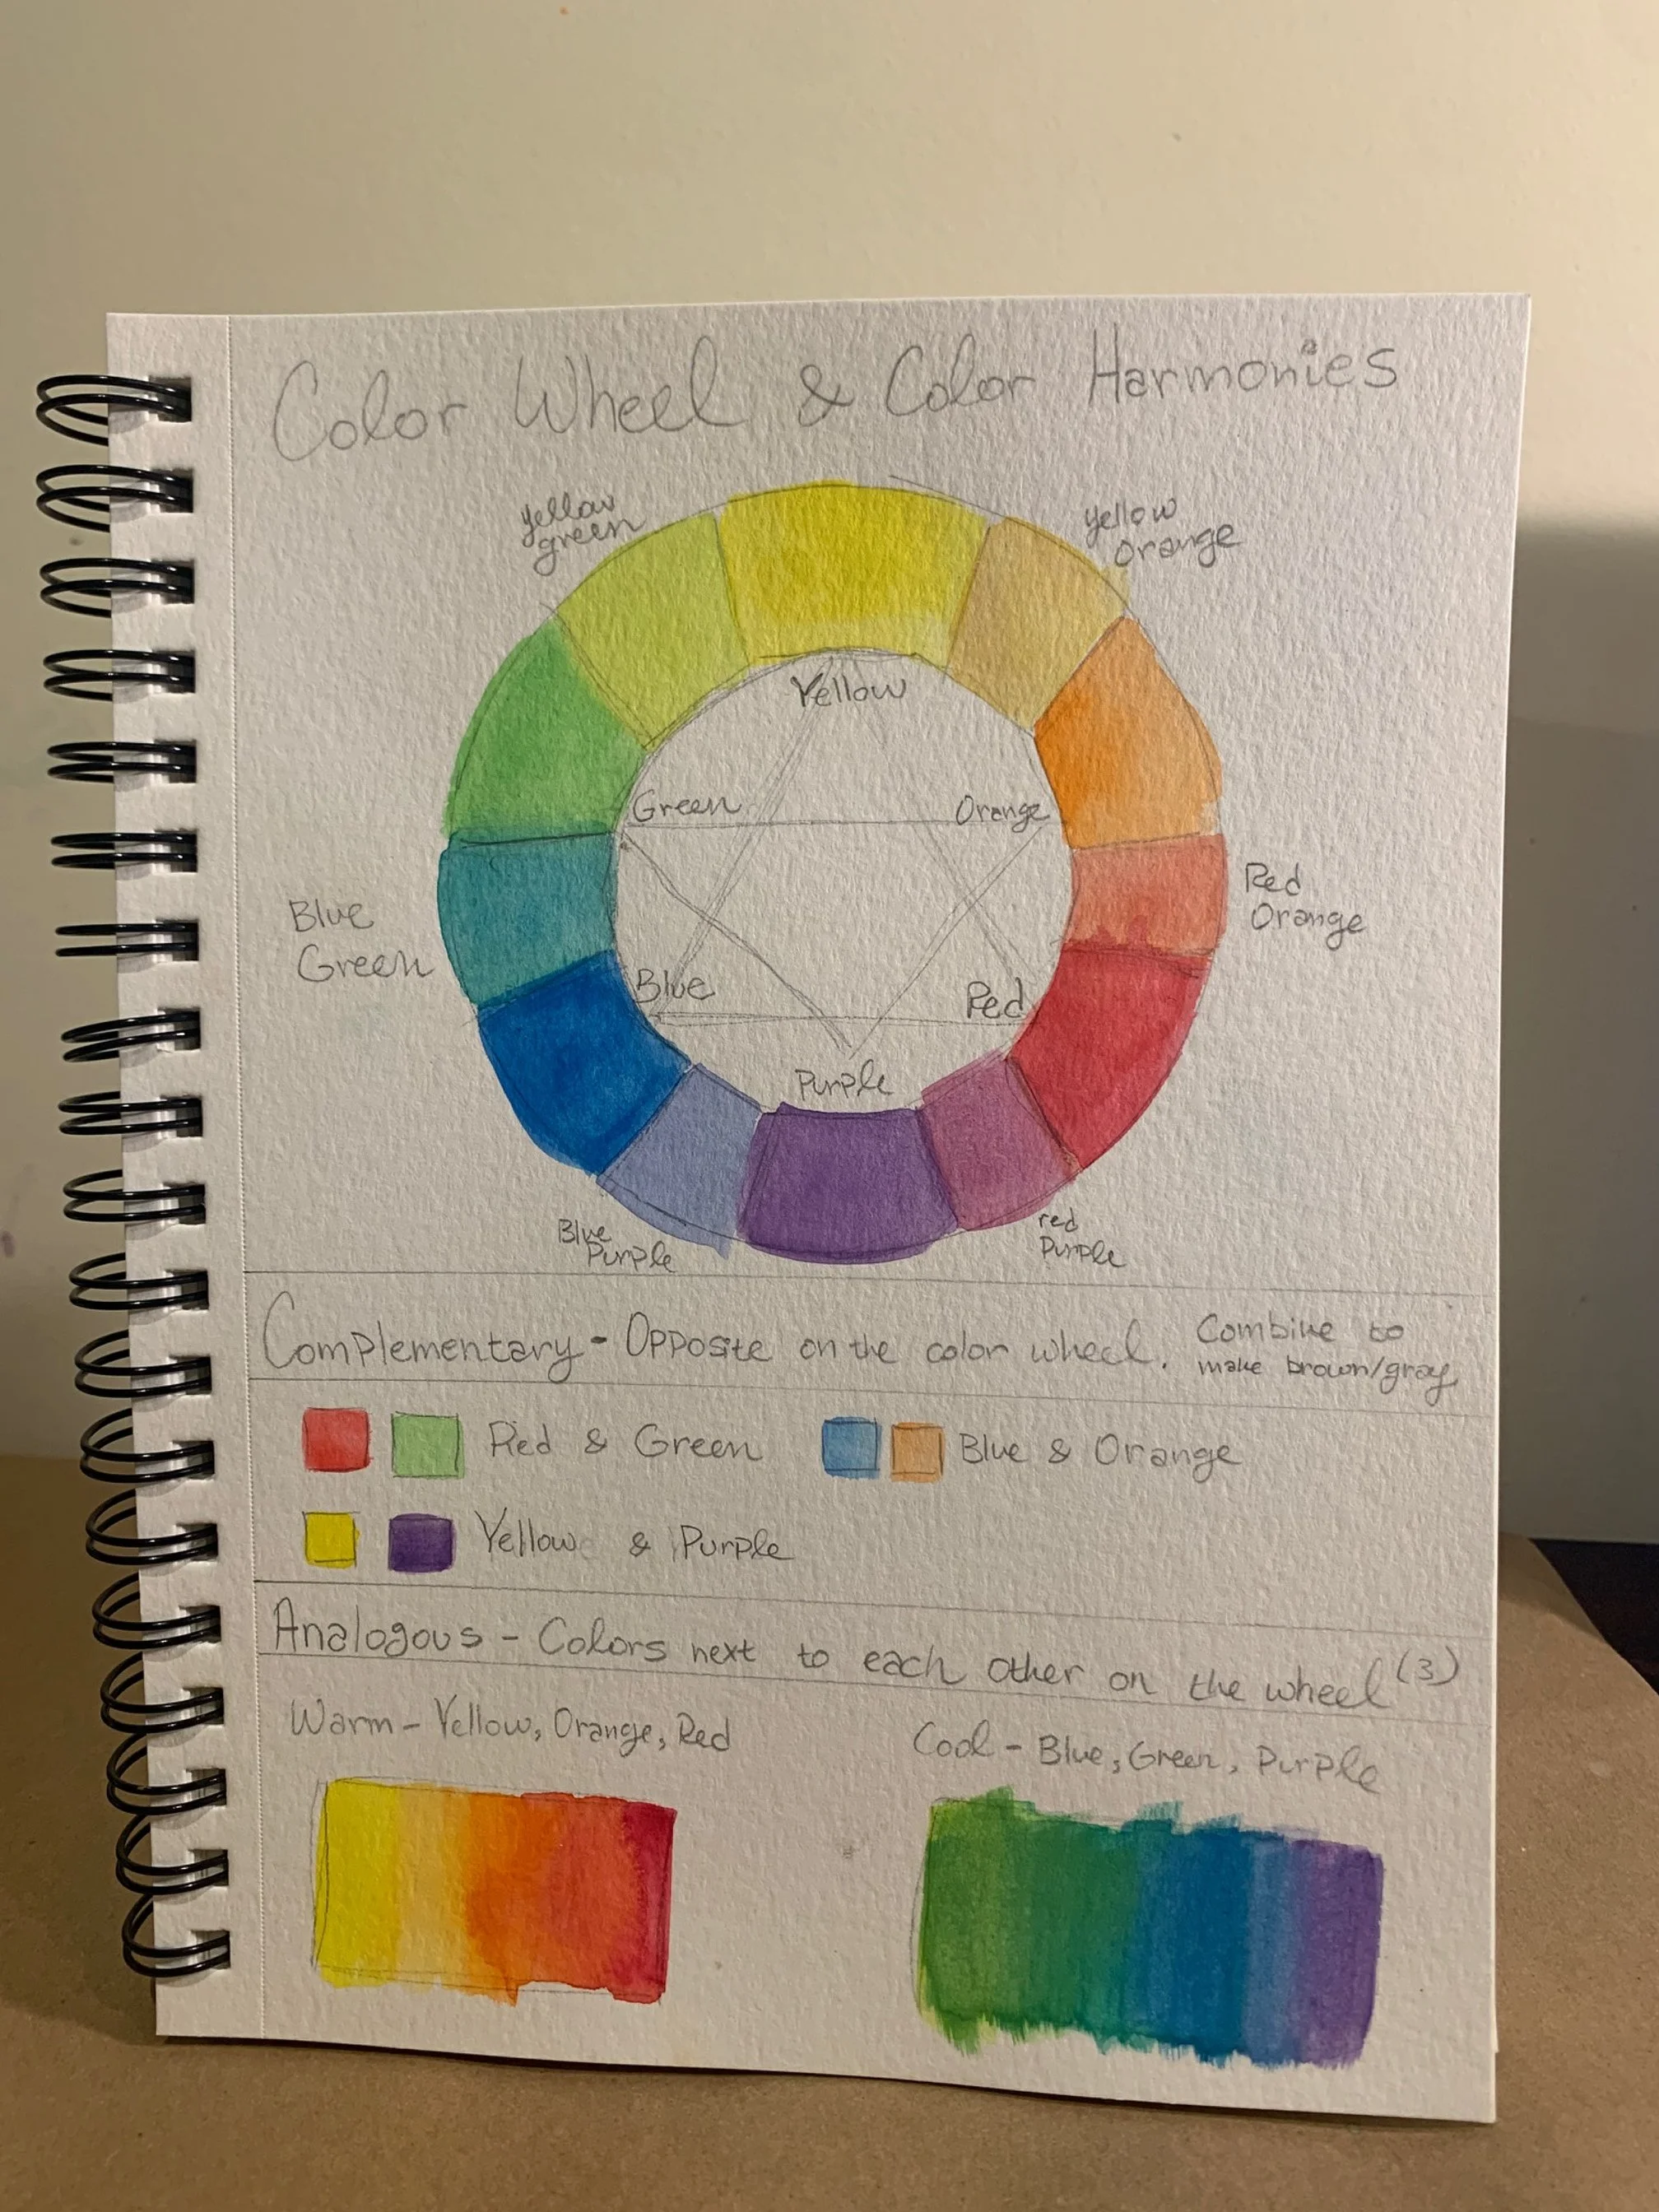 Color Wheel & Color Harmonies
yellow
green
yellow
orange
Yellow
Green
Orange
Blue
Green
Red
Orange
Blue
Red
Purple
Blue
Purple
red
Purple
Complementary - Opposite on the color wheel. Combine to
make brown/gray
Red & Green
Blue & Orange
Yellow & Purple
Analogous - Colors next to each other on the wheel (3)
Warm - Yellow, Orange, Red
Cool - Blue, Green, Purple